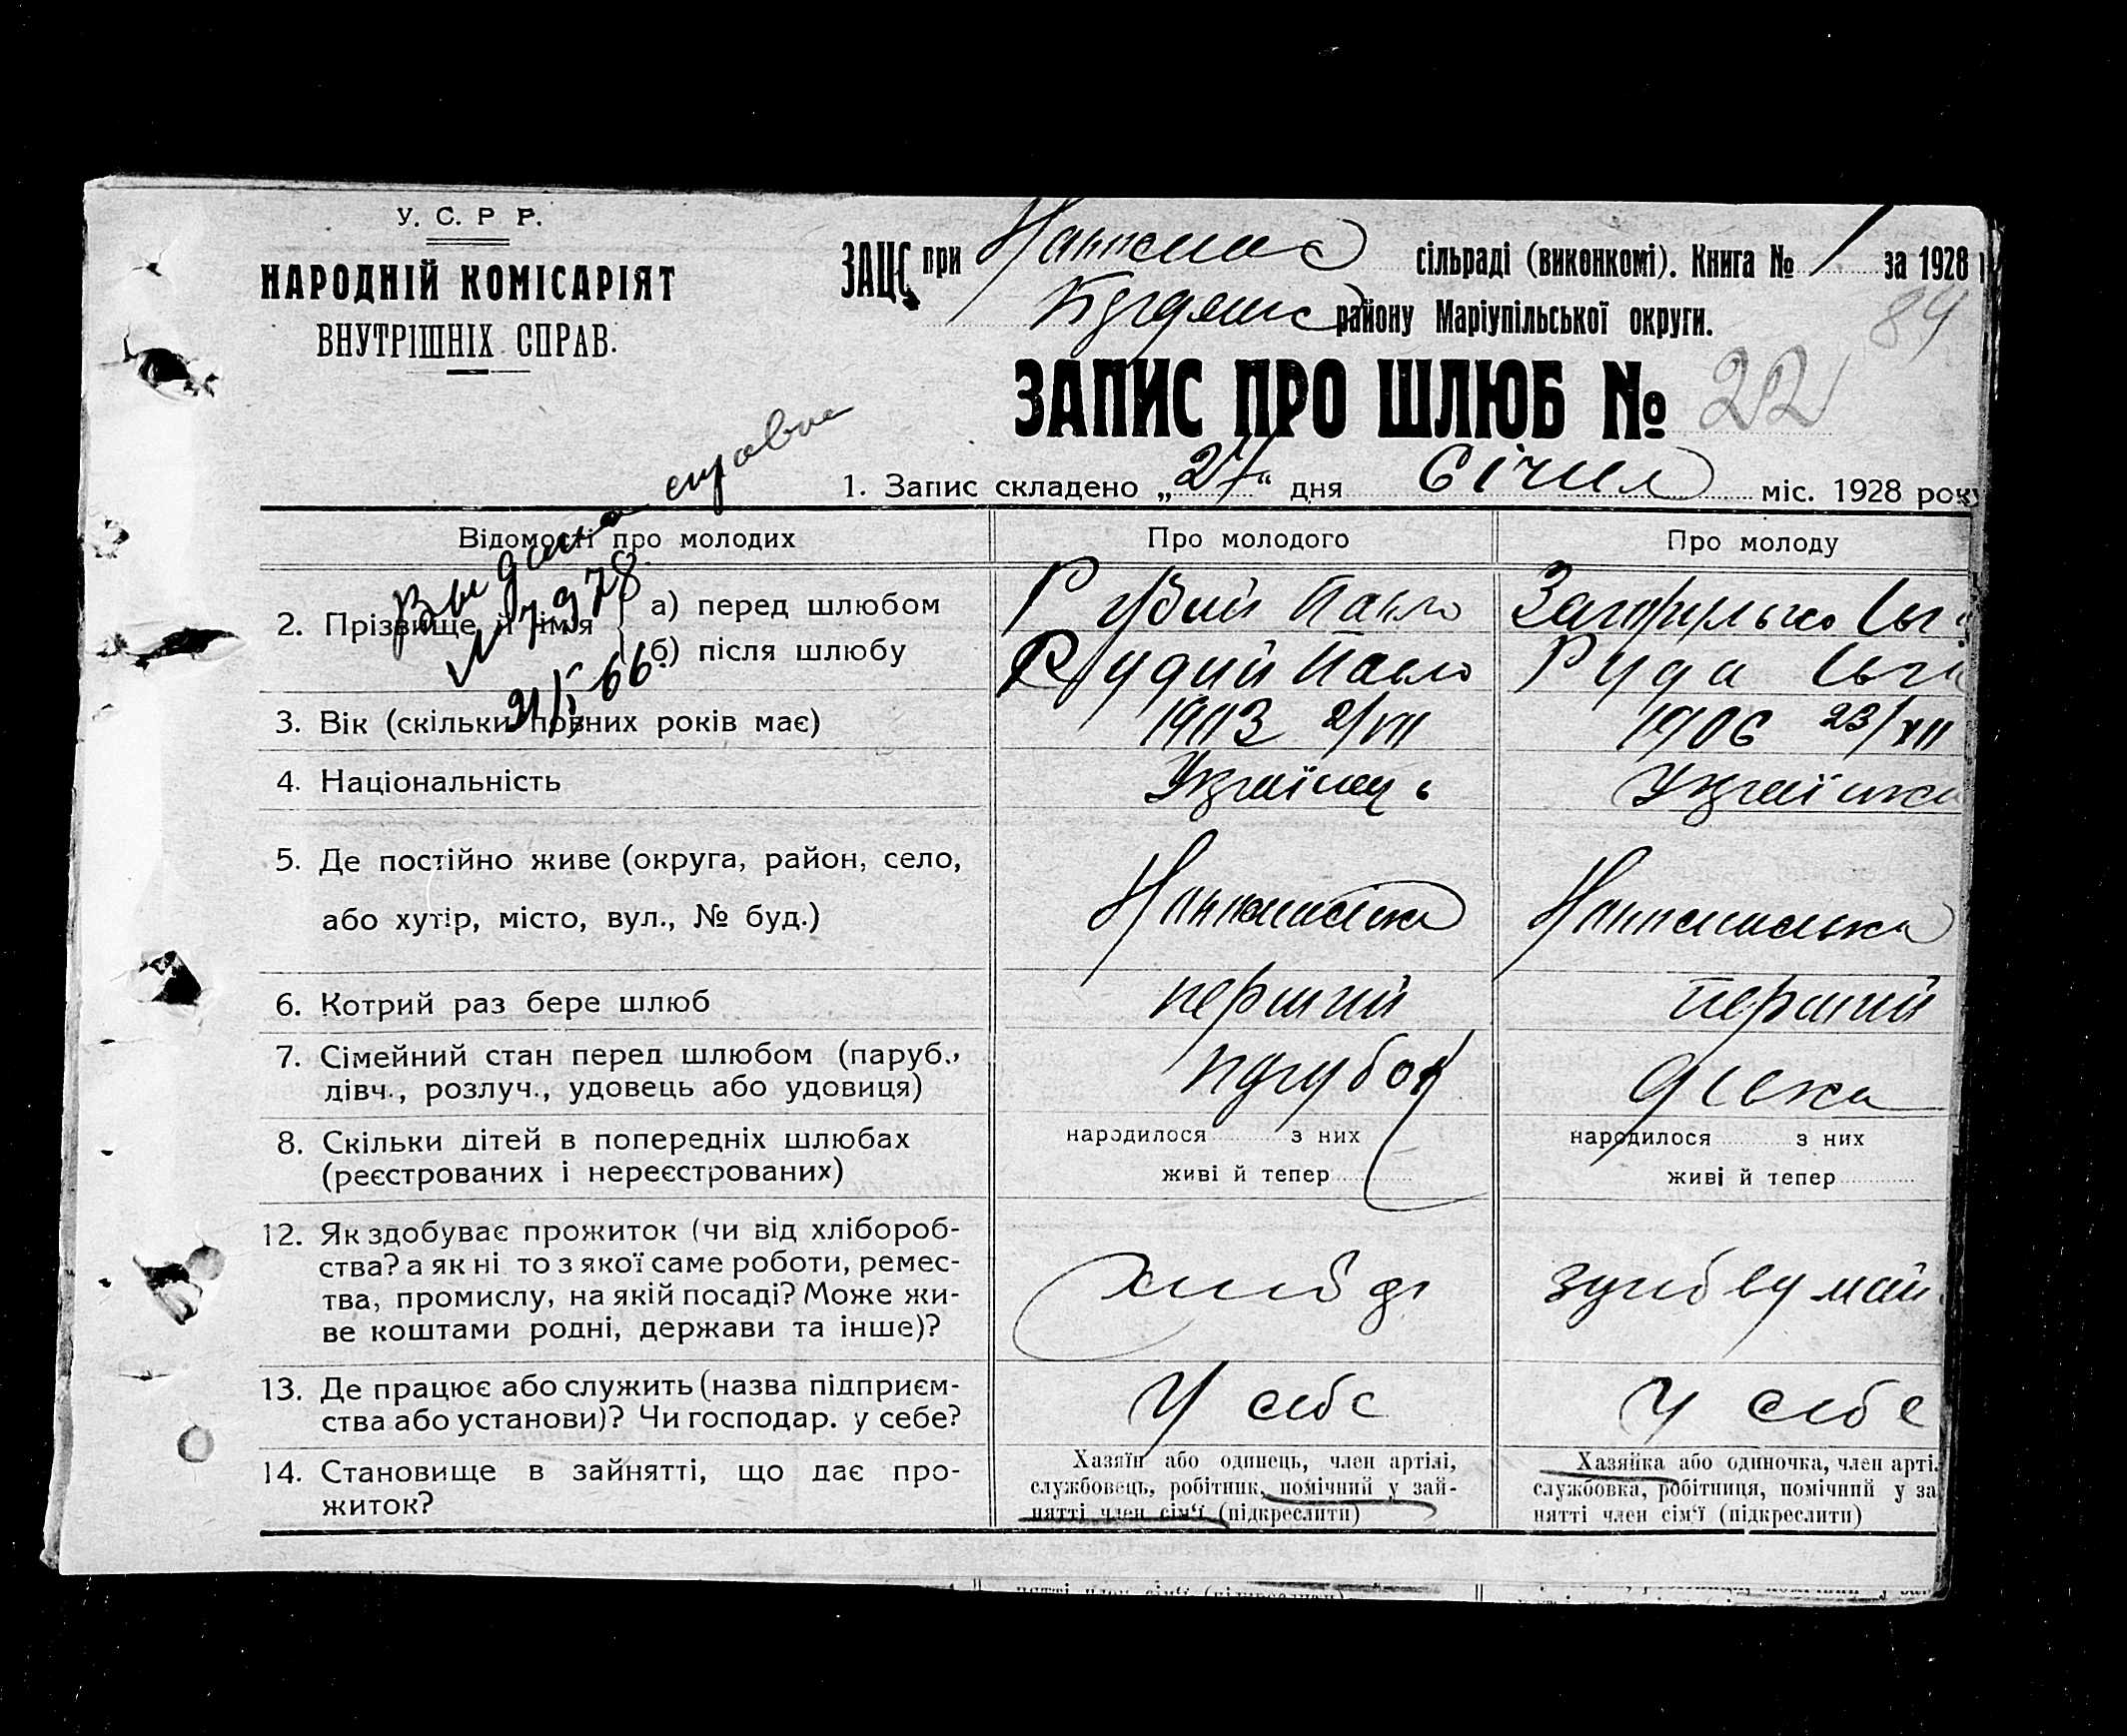 У. С. Р Р.
НАРОДНІЙ КОМІСАРІЯТ
ВНУТРІШНІХ СПРАВ.
ЗАЦС при сільраді (виконкомі). Книга № 1 за 1928
району Маріупільської округи.
89
ЗАПИС ПРО ШЛЮБ № 22
1. Запис складено „27“ дня Січня міс. 1928 року
Выдана справка
№ 7978
31/ 66.
Відомості про молодих Про молодого Про молоду
2. Прізвище й імя
а) перед шлюбом Рудий Павло
б) після шлюбу Рудий Павло Руда
3. Вік (скільки повних років має) 1903 2/VII 1906 23/XII
4. Національність Українець Українка
5. Де постійно живе (округа, район, село,
або хутір, місто, вул., № буд.)
6. Котрий раз бере шлюб перший перший
7. Сімейний стан перед шлюбом (паруб.,
дівч., розлуч., удовець або удовиця) парубок дівка
8. Скільки дітей в попередніх шлюбах
(реєстрованих і нереєстрованих)
народилося з них
живі й тепер
народилося з них
живі й тепер
12. Як здобуває прожиток (чи від хлібороб-
ства? а як ні то з якої саме роботи, ремес-
тва, промислу, на якій посаді? Може жи-
ве коштами родні, держави та інше)?
13. Де працює або служить (назва підприєм-
ства або установи)? Чи господар. у себе?
У себе У себе
14. Становище в зайнятті, що дає про-
житок?
Хазяїн або одинець, член артілі,
службовець, робітник, помічний у зай-
нятті член сім'ї (підкреслити)
Хазяйка або одиночка, член арті
службовка, робітниця, помічний у за
нятті член сім'ї (підкреслити)